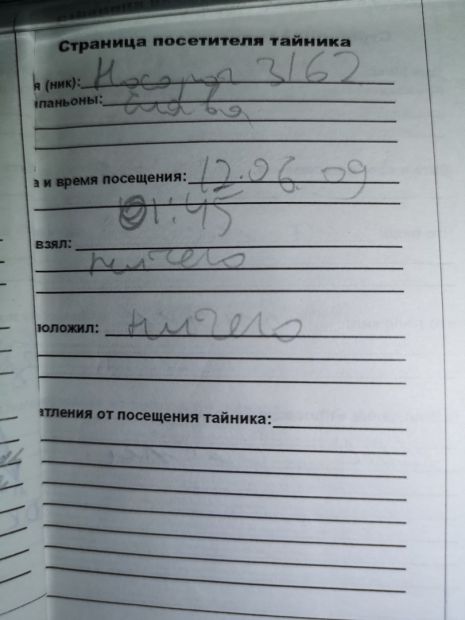 Страница посетителя тайника
я (ник): Носорог 3162
мпаньоны: Слава
а и время посещения: 12.06.09
01:45
взял:
ничего
положил: ничего
атления от посещения тайника: